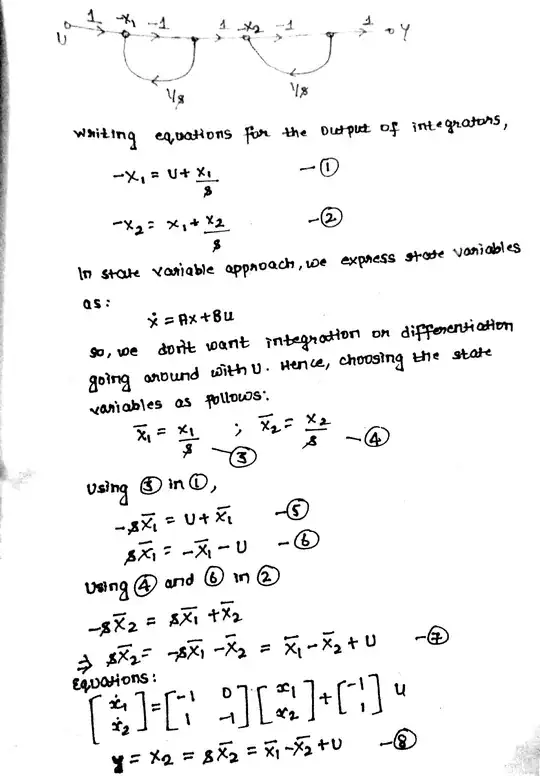 U 1 -x₁ -1 1 -x₂ -1 1 Y
1/s 1/s
Writing equations for the output of integrators,
-x₁ = U + x₁/s -①
-x₂ = x₁ + x₂/s -②
In state variable approach, we express state variables
as:
ẋ = Ax + Bu
So, we don't want integration or differentiation
going around with U. Hence, choosing the state
variables as follows:
x̄₁ = x₁/s -③ ; x̄₂ = x₂/s -④
Using ③ in ①,
-sx̄₁ = U + x̄₁ -⑤
sx̄₁ = -x̄₁ - U -⑥
Using ④ and ⑥ in ②
-sx̄₂ = sx̄₁ + x̄₂
⇒ sx̄₂ = -sx̄₁ - x̄₂ = x̄₁ - x̄₂ + U -⑦
Equations:
[ẋ₁ ẋ₂] = [-1 0 1 -1] [x₁ x₂] + [-1 1] u
y = x₂ = sx̄₂ = x̄₁ - x̄₂ + U -⑧